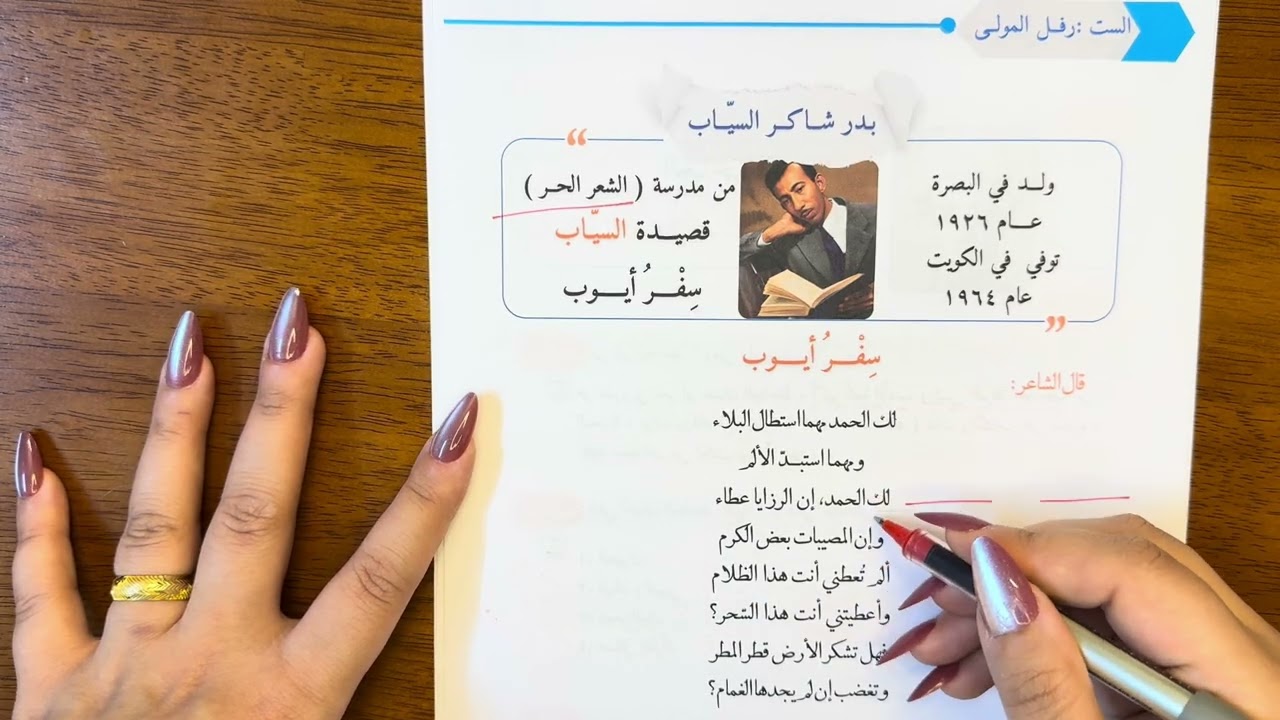 الست :رفل المولى
بدر شاكر السيّاب
ولد في البصرة
عام ١٩٢٦
توفي في الكويت
عام ١٩٦٤
من مدرسة ( الشعر الحر )
قصيدة السيّاب
سِفْرُ أيوب
سِفْرُ أيوب
قال الشاعر:
لك الحمد مهما استطال البلاء
ومهما استبدّ الألم
لك الحمد، إن الرزايا عطاء
وإن المصيبات بعض الكرم
ألم تُعطني أنت هذا الظلام
وأعطيتني أنت هذا السّحر؟
فهل تشكر الأرض قطر المطر
وتغضب إن لم يجدها الغمام؟